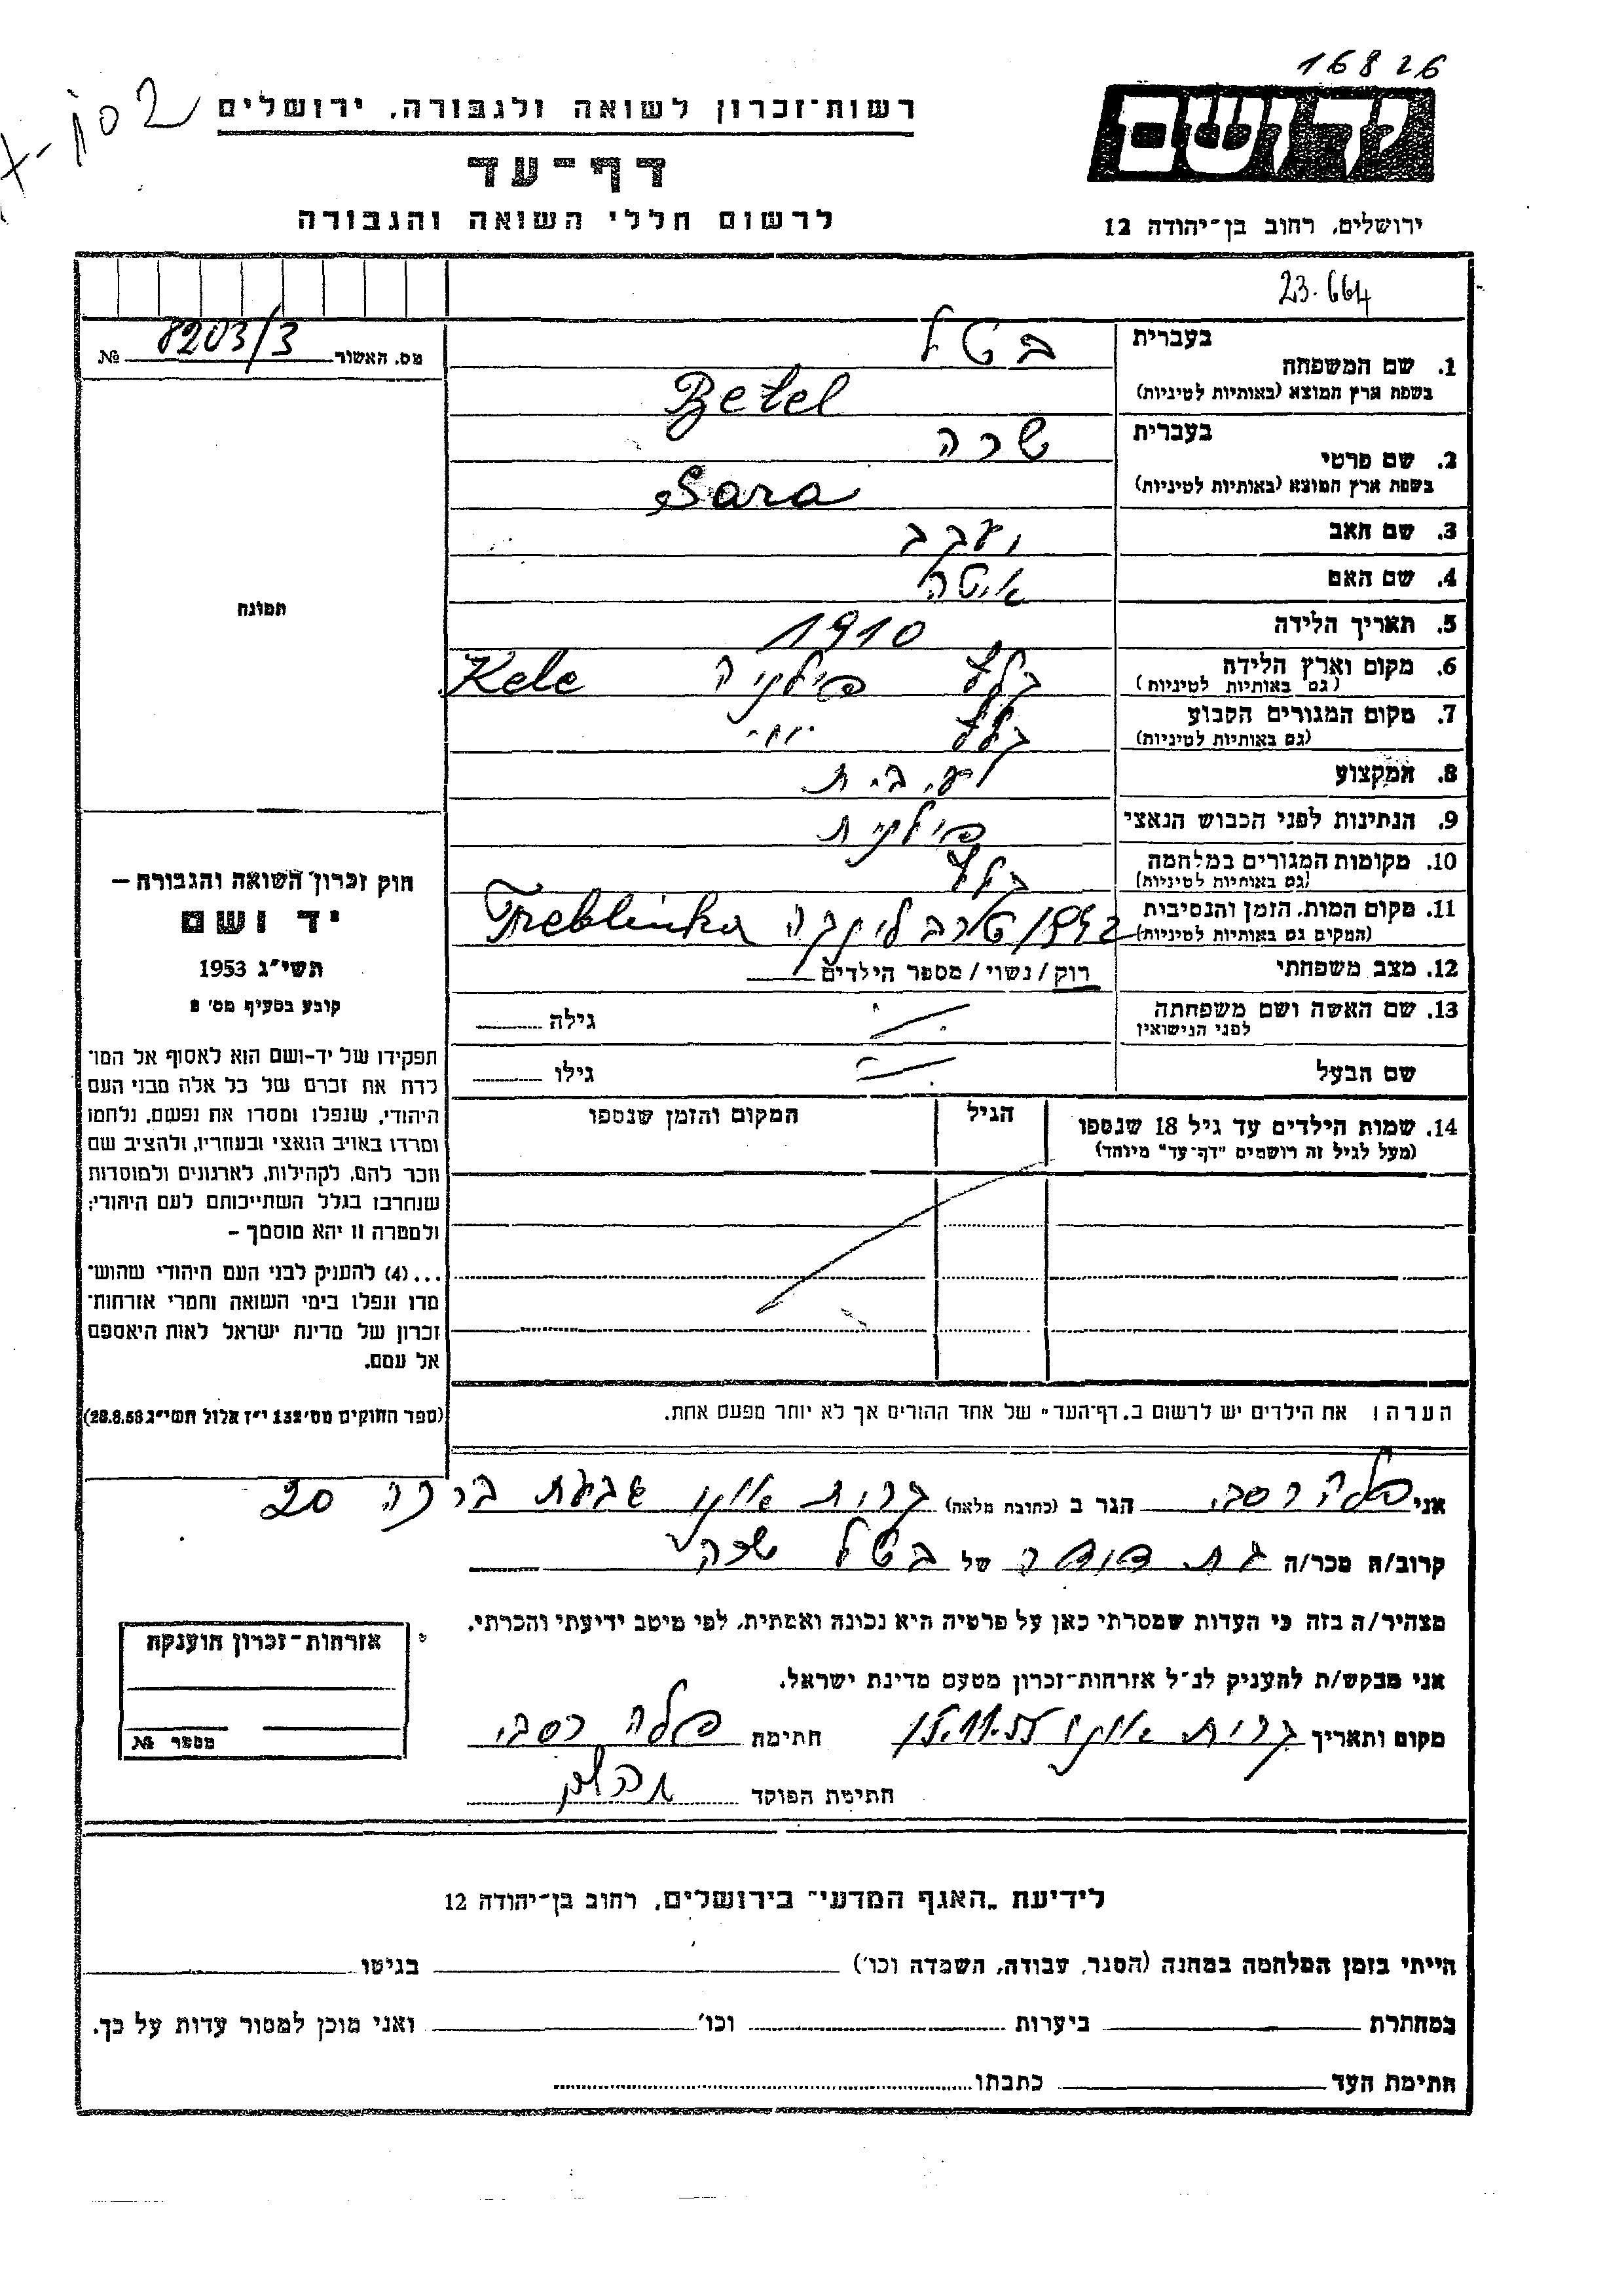 16826
רשות־זכרון לשואה ולגבורה, ירושלים
יד ושם
דף־עד
לרשום חללי השואה והגבורה
ירושלים, רחוב בן־יהודה 12
23.664
מס. האשור № 8203/3
בעברית בטל
1. שם המשפחה
בשפת ארץ המוצא (באותיות לטיניות) Betel
בעברית שרה
2. שם פרטי
בשפת ארץ המוצא (באותיות לטיניות) Sara
3. שם האב יעקב
4. שם האם איטה
תמונה
5. תאריך הלידה 1910
6. מקום וארץ הלידה פולניה Kele
(גם באותיות לטיניות)
7. מקום המגורים הקבוע
(גם באותיות לטיניות)
8. המקצוע
9. הנתינות לפני הכבוש הנאצי פולנית
10. מקומות המגורים במלחמה
(גם באותיות לטיניות)
11. מקום המות, הזמן והנסיבות 1942 טרבלינקה Treblinka
(המקום גם באותיות לטיניות)
12. מצב משפחתי רוק / נשוי / מספר הילדים
13. שם האשה ושם משפחתה גילה
לפני הנישואין
שם הבעל גילו
14. שמות הילדים עד גיל 18 שנספו הגיל המקום והזמן שנספו
(מעל לגיל זה רושמים "דף־עד" מיוחד)
חוק זכרון השואה והגבורה –
יד ושם
תשי"ג 1953
קובע בסעיף מס' 2
תפקידו של יד-ושם הוא לאסוף אל המו־
לדת את זכרם של כל אלה מבני העם
היהודי, שנפלו ומסרו את נפשם, נלחמו
ומרדו באויב הנאצי ובעוזריו, ולהציב שם
וזכר להם, לקהילות, לארגונים ולמוסדות
שנחרבו בגלל השתייכותם לעם היהודי;
ולמטרה זו יהא מוסמך –
...(4) להעניק לבני העם היהודי שהוש־
מדו ונפלו בימי השואה והמרי אזרחות־
זכרון של מדינת ישראל לאות היאספם
אל עמם.
(ספר החוקים מס' 132 י"ז אלול תשי"ג 28.8.53)
הערה: את הילדים יש לרשום ב„דף־העד" של אחד ההורים אך לא יותר מפעם אחת.
אני הגר ב (כתובת מלאה) קרית אונו שבעת 20
קרוב/ה מכר/ה בת דודה של בטל שרה
מצהיר/ה בזה כי העדות שמסרתי כאן על פרטיה היא נכונה ואמתית, לפי מיטב ידיעתי והכרתי.
אני מבקש/ת להעניק לנ"ל אזרחות־זכרון מטעם מדינת ישראל.
מקום ותאריך קרית אונו חתימת
חתימת הפוקד
אזרחות־זכרון הוענקה
מספר №
לידיעת „האגף המדעי" בירושלים, רחוב בן־יהודה 12
הייתי בזמן המלחמה במחנה (הסגר, עבודה, השמדה וכו') בגיטו
במחתרת ביערות וכו' ואני מוכן למסור עדות על כך.
חתימת העד כתבתו